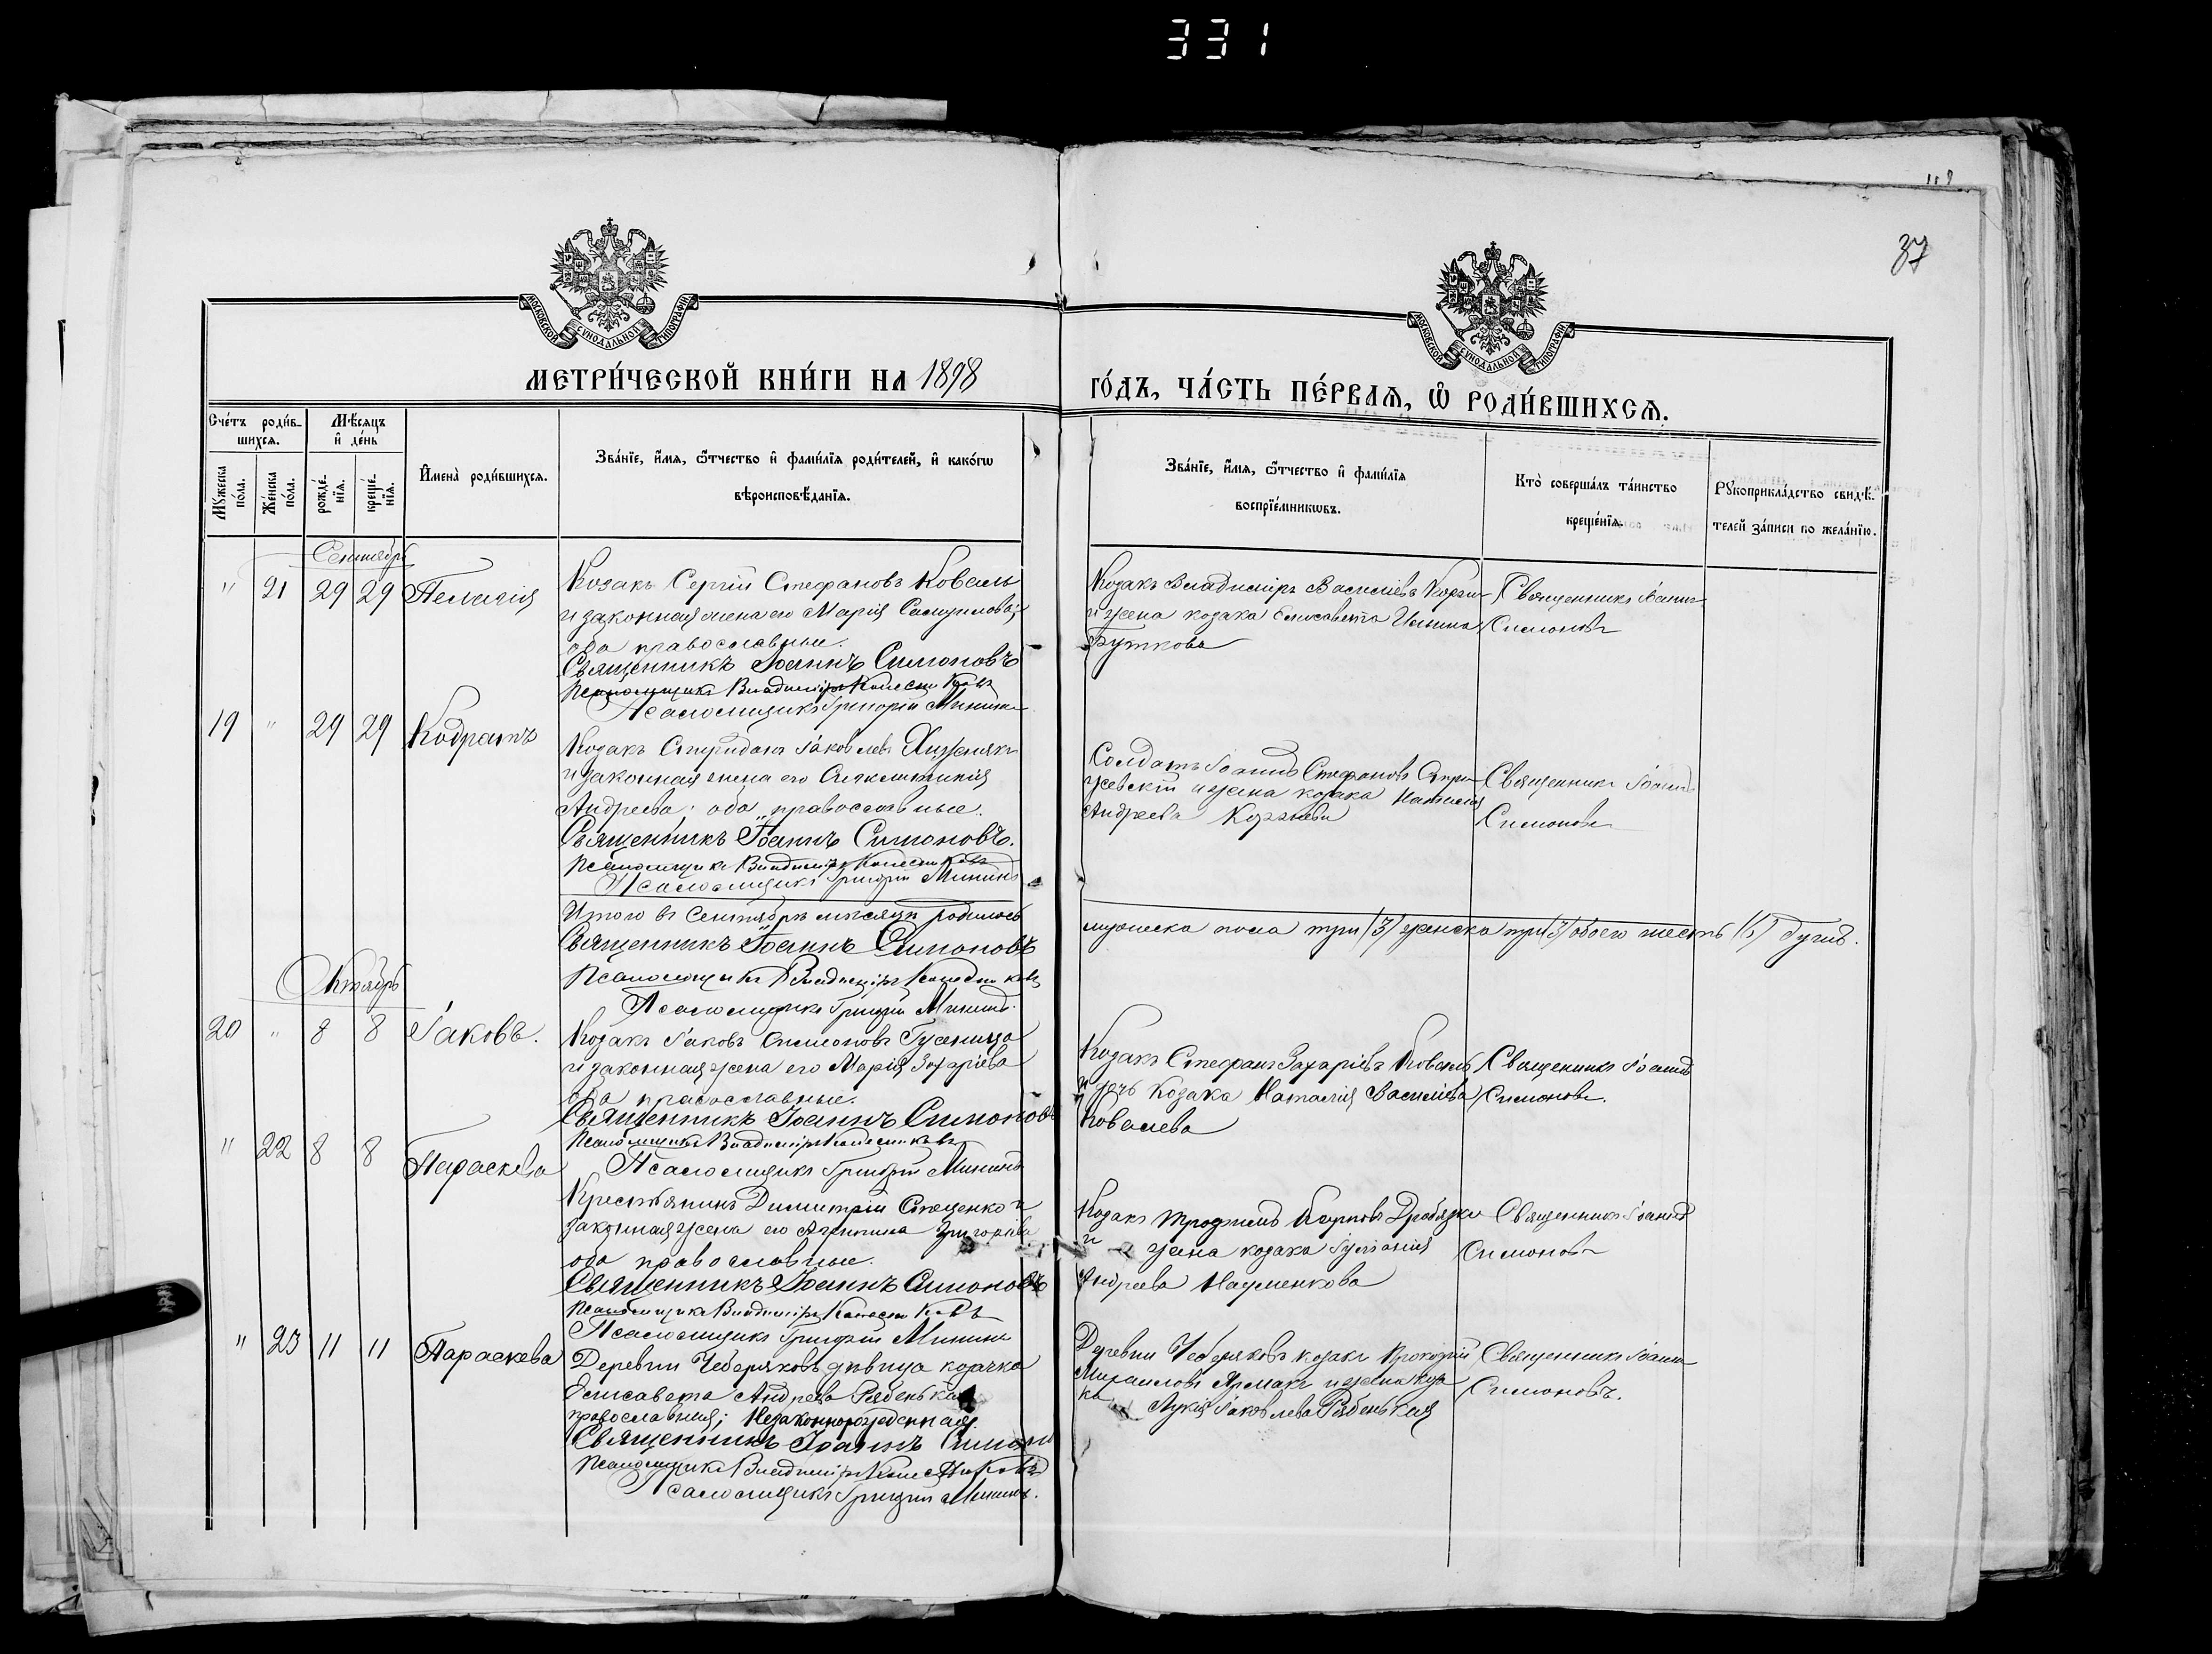 331
118
37
МОСКОВСКОЙ СУНОДАЛЬНОЙ ТИПОГРАФІИ
МОСКОВСКОЙ СУНОДАЛЬНОЙ ТИПОГРАФІИ
МЕТРИ́ЧЕСКОЙ КНИ́ГИ НА 1898
ГО́ДЪ, ЧА́СТЬ ПЕ́РВАѦ, Ѡ҆ РОДИ́ВШИХСѦ.
Сче́тъ роди́в-
шихсѧ.
Мѣ́сѧцъ
и҆ де́нь
Мꙋ́жеска
по́ла.
Же́нска
по́ла.
рожде́-
нїѧ.
креще́-
нїѧ.
И҆мена̀ роди́вшихсѧ.
Зва́нїе, и҆́мѧ, ѻ҆́тчество и҆ фами́лїѧ роди́телей, и҆ како́гѡ
вѣроисповѣ́данїѧ.
Зва́нїе, и҆́мѧ, ѻ҆́тчество и҆ фами́лїѧ
воспрїе́мникѡвъ.
Кто̀ соверша́лъ та́инство
креще́нїѧ.
Рꙋкоприкла́дство свидѣ́-
телей за́писи по жела́нїю.
Сентябрь
" 21 29 29 Пелагія
Козакъ Сергій Стефановъ Коваль
и законная жена его Марія Самуилова;
оба православные.
Священникъ Іоаннъ Симоновъ
Псаломщикъ Владиміръ Колесниковъ
Псаломщикъ Григорій Мининъ
Козакъ Владиміръ Василіевъ
и жена козака Елисавета Ильина
Буткова
Священникъ Іоаннъ
Симоновъ
19 " 29 29 Кодратъ
Козакъ Спиридонъ Іаковлевъ Хижнякъ
и законная жена его Синклитикія
Андреева; оба православные.
Священникъ Іоаннъ Симоновъ.
Псаломщикъ Владиміръ Колесниковъ
Псаломщикъ Григорій Мининъ
Солдатъ Іоаннъ Стефановъ
и жена козака Наталія
Андреева
Священникъ Іоаннъ
Симоновъ
Итого въ Сентябрѣ мѣсяцѣ родилось
мужеска пола три /3/ женска три /3/ обоего шесть /6/ душъ.
Священникъ Іоаннъ Симоновъ
Псаломщикъ Владиміръ Колесниковъ
Псаломщикъ Григорій Мининъ.
Октябрь
20 " 8 8 Іаковъ.
Козакъ Іаковъ Симоновъ Гусеница
и законная жена его Марія Захаріева
оба православные.
Священникъ Іоаннъ Симоновъ
Псаломщикъ Владиміръ Колесниковъ
Псаломщикъ Григорій Мининъ
Козакъ Стефанъ Захаріевъ Коваль
и дочь козака Наталія Василіева
Ковалева
Священникъ Іоаннъ
Симоновъ.
" 22 8 8 Параскева
Крестьянинъ Димитрій Стаценко и
законная жена его Агриппина Григоріева
оба православные.
Священникъ Іоаннъ Симоновъ
Псаломщикъ Владиміръ Колесниковъ
Псаломщикъ Григорій Мининъ
Козакъ Трофимъ Карповъ Дробязка
и жена козака Іуліанія
Андреева Науменкова
Священникъ Іоаннъ
Симоновъ
" 23 11 11 Параскева
Деревни Чеберяковъ дѣвица козачка
Елисавета Андреева Рябенькая
православная; незаконнорожденная.
Священникъ Іоаннъ Симоновъ
Псаломщикъ Владиміръ Колесниковъ
Псаломщикъ Григорій Мининъ.
Деревни Чеберяковъ козакъ Прокофій
Михаиловъ Ярмакъ и жена коза
ка Лукія Іаковлева Рябенькая
Священникъ Іоаннъ
Симоновъ.